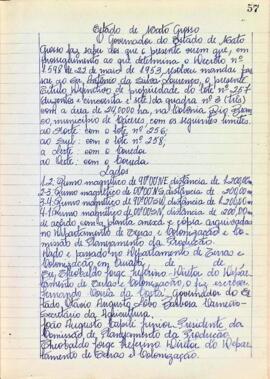 57
Estado de Mato Grosso
O Governador do Estado de Mato
Grosso faz saber aos que o presente virem que, em
prosseguimento ao que determina o Decreto nº
1.598 de 22 de maio de 1953, resolveu mandar pas
sar ao sr. Antônio da Silva Lourenço, o presente
Título Definitivo de propriedade do lote nº 257
duzentos e cincoenta e sete da quadra nº 3 (três)
com a área de 24,0000 ha, na Colonia Rio Fer
ro, município de com os seguintes limites:
ao Norte: com o lote nº 256;
ao Sul: com o lote nº 258;
a Leste: com a
ao Oeste: com a
Lados
1-2. Rumo magnético de 90º00'NE distância de 1.200,00m
2-3. Rumo magnético de distância de 200,00m
3-4. Rumo magnético de distância de 1.200,00m
4-1. Rumo magnético de distância de 200,00m
de acôrdo com a planta anexa e cópia arquivadas
no Departamento de Terras e Colonização e Co-
missão de Planejamento da Produção.
Dado e passado no Departamento de Terras e
Colonização, em Cuiabá, de
Eu, Theobaldo Jorge Refeino Diretor do Depar
tamento de Terras e Colonização, o fiz escrever.
Fernando Corrêa da Costa Governador do Es
tado
Secretário da Agricultura.
João Augusto Capilé Junior Presidente da
Comissão de Planejamento da Produção.
Theobaldo Jorge Refeino Diretor do Depar
tamento de Terras e Colonização.